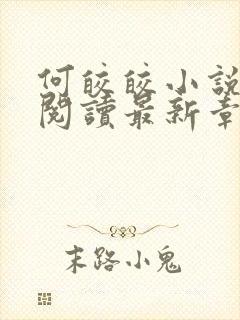 何皎皎小説
閱讀最新章
末路小鬼